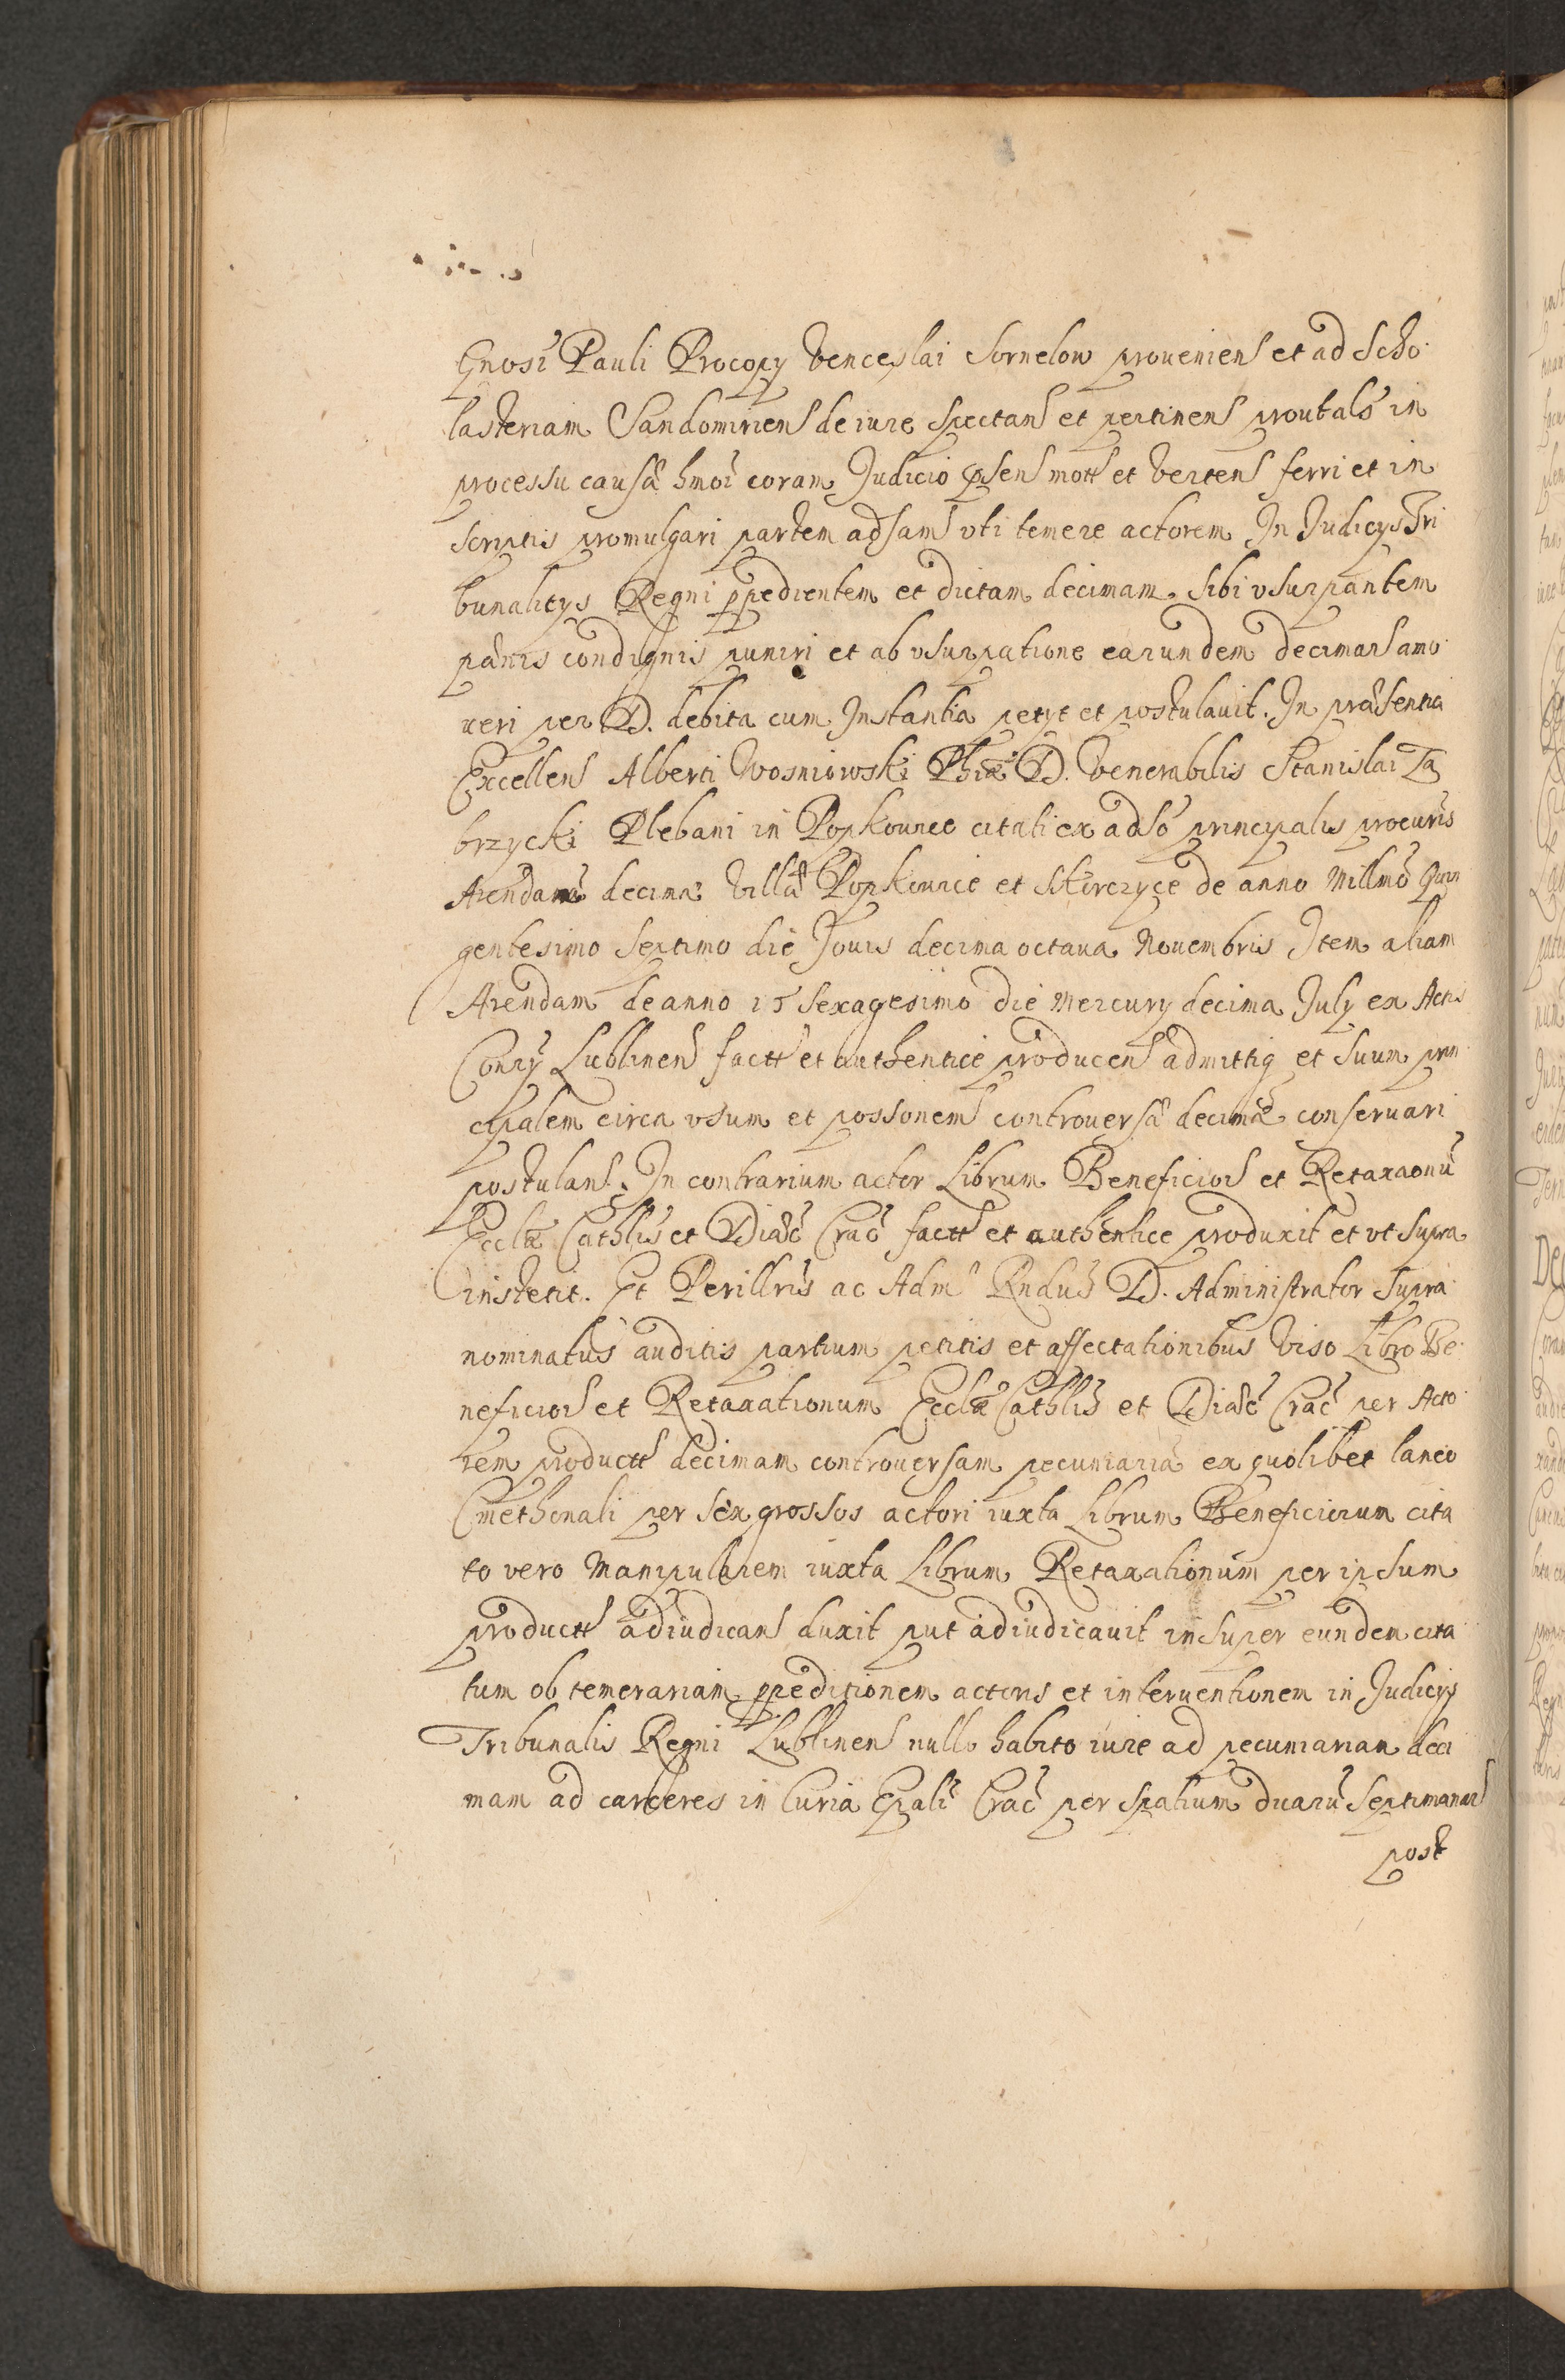 Gnosi Pauli Procopy Venceslai Sornelow proueniens et ad Scho
lasteriam Sandomiriens de iure spectans et pertinens prout als in
processu causæ hmoi coram Judicio psens mott et vertens ferri et in
scriptis promulgari partem adsam vti temere actorem In Judicys Tri
bunalitys Regni ppedientem et dictam decimam sibi vsurpantem
pænis condignis puniri et ab vsurpatione earundem decimars amo
ueri per D. debita cum Instantia petyt et postulauit. In præsentia
Excellens Alberti Wosniowski Phiæ D. Venerabilis Stanislai Za
brzycki Plebani in Popkowice citati ex adso principalis procuris
Arendam decimæ Villæ Popkowice et Skorczyce de anno Millmo Quin
gentesimo septimo die Jouis decima octaua Nouembris Item aliam
Arendam de anno 15 sexagesimo die Mercury decima July ex Actis
Consry Lublinens factt et authentice producens admittiq et suum prin
cipalem circa vsum et possonem controuersæ decimæ conseruari
postulans. In contrarium actor Librum Beneficiors et Retaxaonu
Ecclæ Cathlis et Diæc Crac factt et authentice produxit et vt supra
institit. Et Perillris ac Adm Rndus D. Administrator supra
nominatus auditis partium petitis et affectationibus viso Libro Be
neficiors et Retaxationum Ecclæ Cathlis et Diæc Crac per Acto
rem productt decimam controuersam pecuniaria ex quolibet laneo
Cmethonali per sex grossos actori iuxta Librum Beneficiorum cita
to vero Manipularem iuxta Librum Retaxationum per ipsum
productt adiudicans duxit put adiudicauit insuper eundem cita
tum ob temerariam ppeditionem actoris et interuentionem in Judicys
Tribunalis Regni Lublinens nullo habito iure ad pecuniariam deci
mam ad carceres in Curia Epali Crac per spatium duaru septimanars
post